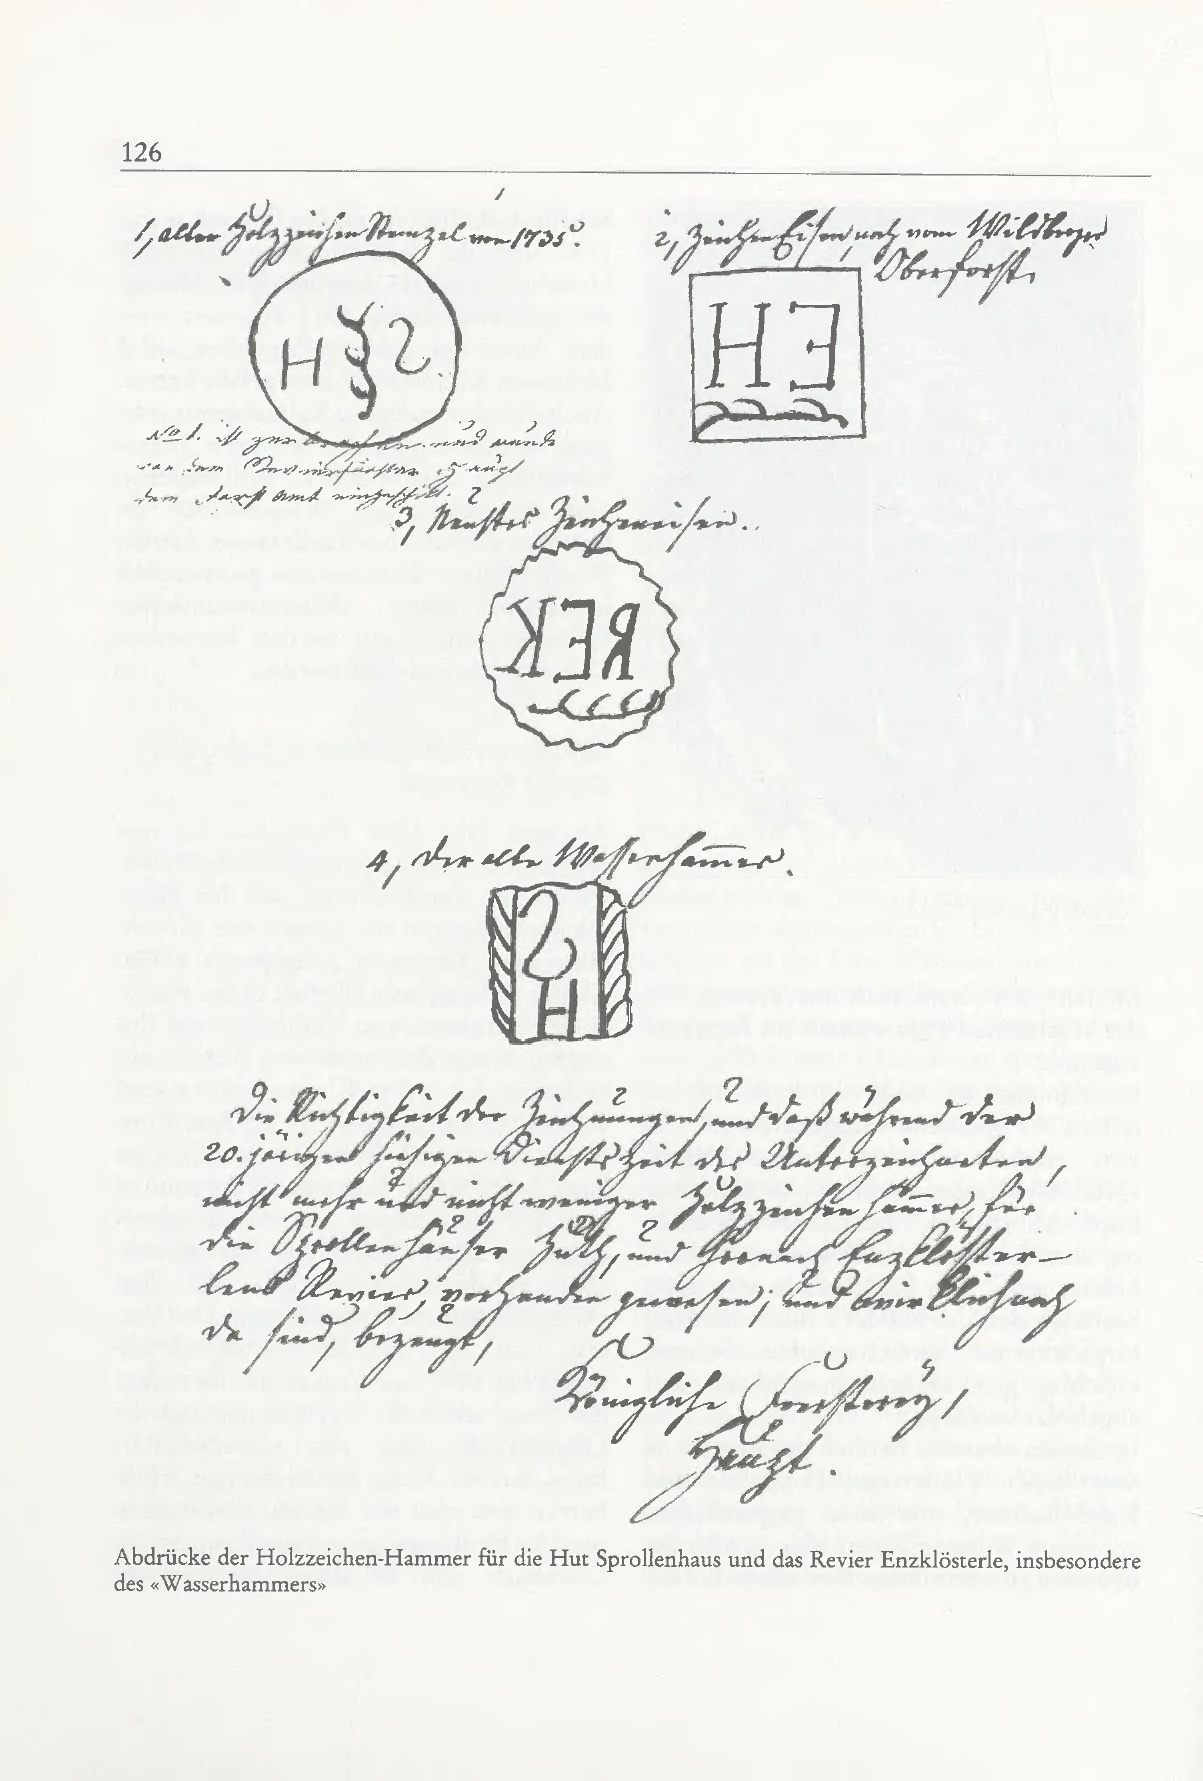 126
1, alter Holzzeichen Stempel von 1735.
2, Zeichen Eisen, noch vom Wildberger
Oberforst.
H S
H E
No 1. ist zerbrochen und wurde
von dem Revierförster Haupt
dem Forst Amt eingeschikt.
3, Neustes Zeicheneisen.
K E R
4, der alte Wasserham̅er.
S
H
Die Richtigkeit der Zeichnungen, und daß während der
20. järigen hiesigen Dienstzeit des Unterzeichneten,
nicht mehr und nicht weniger Holzzeichen häm̅er, für
die Sprollenhäuser Huth, und hernach Enzklöster-
lens Revier, vorhanden gewesen; und wirklich noch
da sind, bezeugt,
Königliche Foersterey,
Haupt.
Abdrücke der Holzzeichen-Hammer für die Hut Sprollenhaus und das Revier Enzklösterle, insbesondere
des «Wasserhammers»